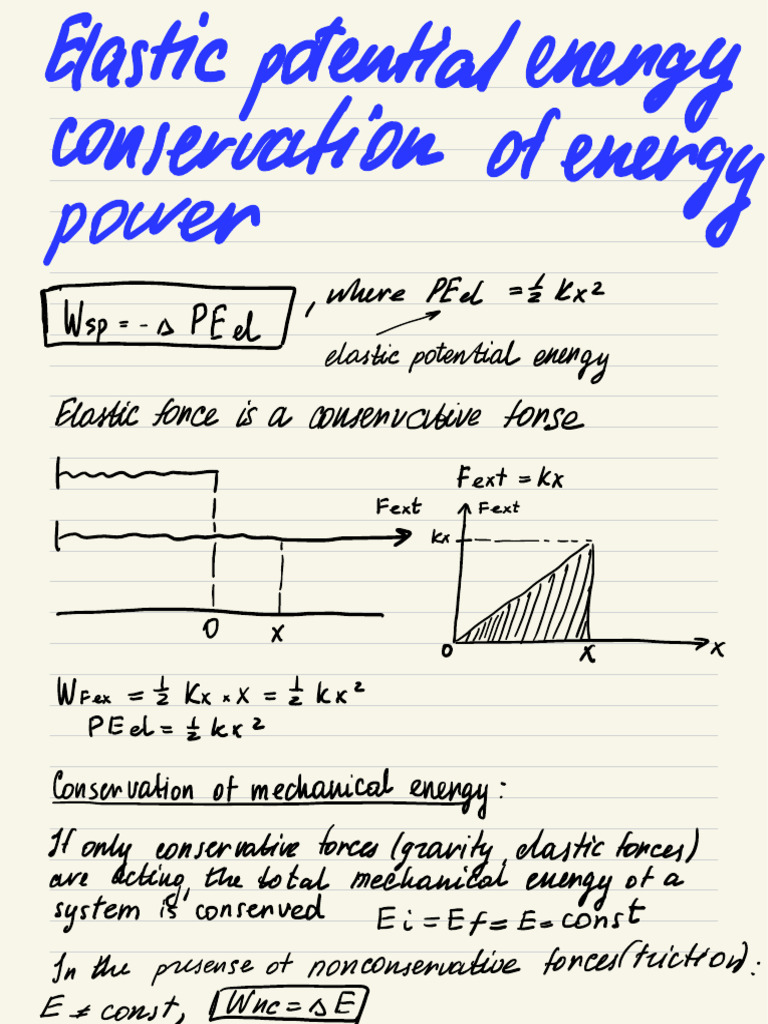 Elastic potential energy
conservation of energy
power
Wsp = -Δ PEel , where PEel = 1/2 kx²
elastic potential energy
Elastic force is a conservative forse
Fext = kx
Fext
Fext
kx
0
x
0
x
x
WFex = 1/2 Kx × x = 1/2 kx²
PEel = 1/2 kx²
Conservation of mechanical energy:
If only conservative forces (gravity, elastic forces)
are acting, the total mechanical energy of a
system is conserved Ei = Ef = E = const
In the presense of nonconservative forces (friction):
E ≠ const, Wnc = Δ E